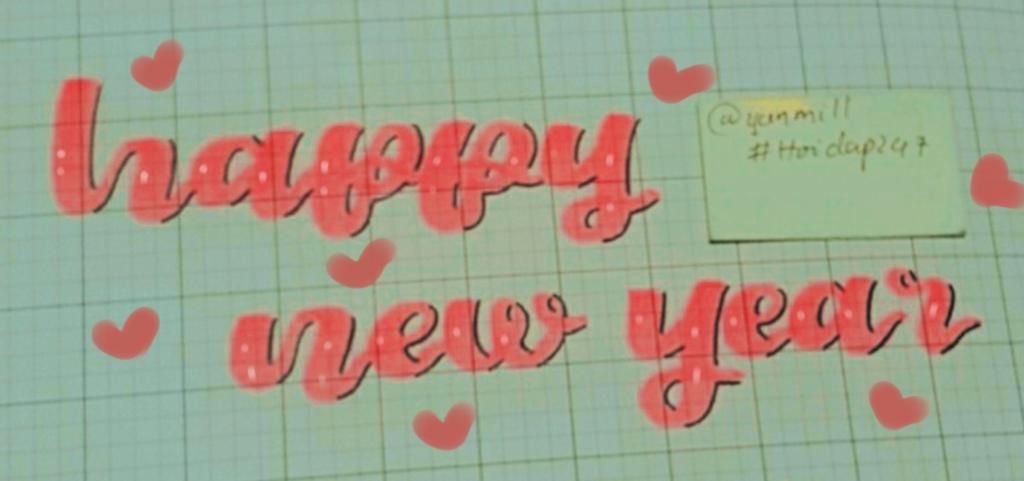 happy
@yunmill
#Hoidap247
new year